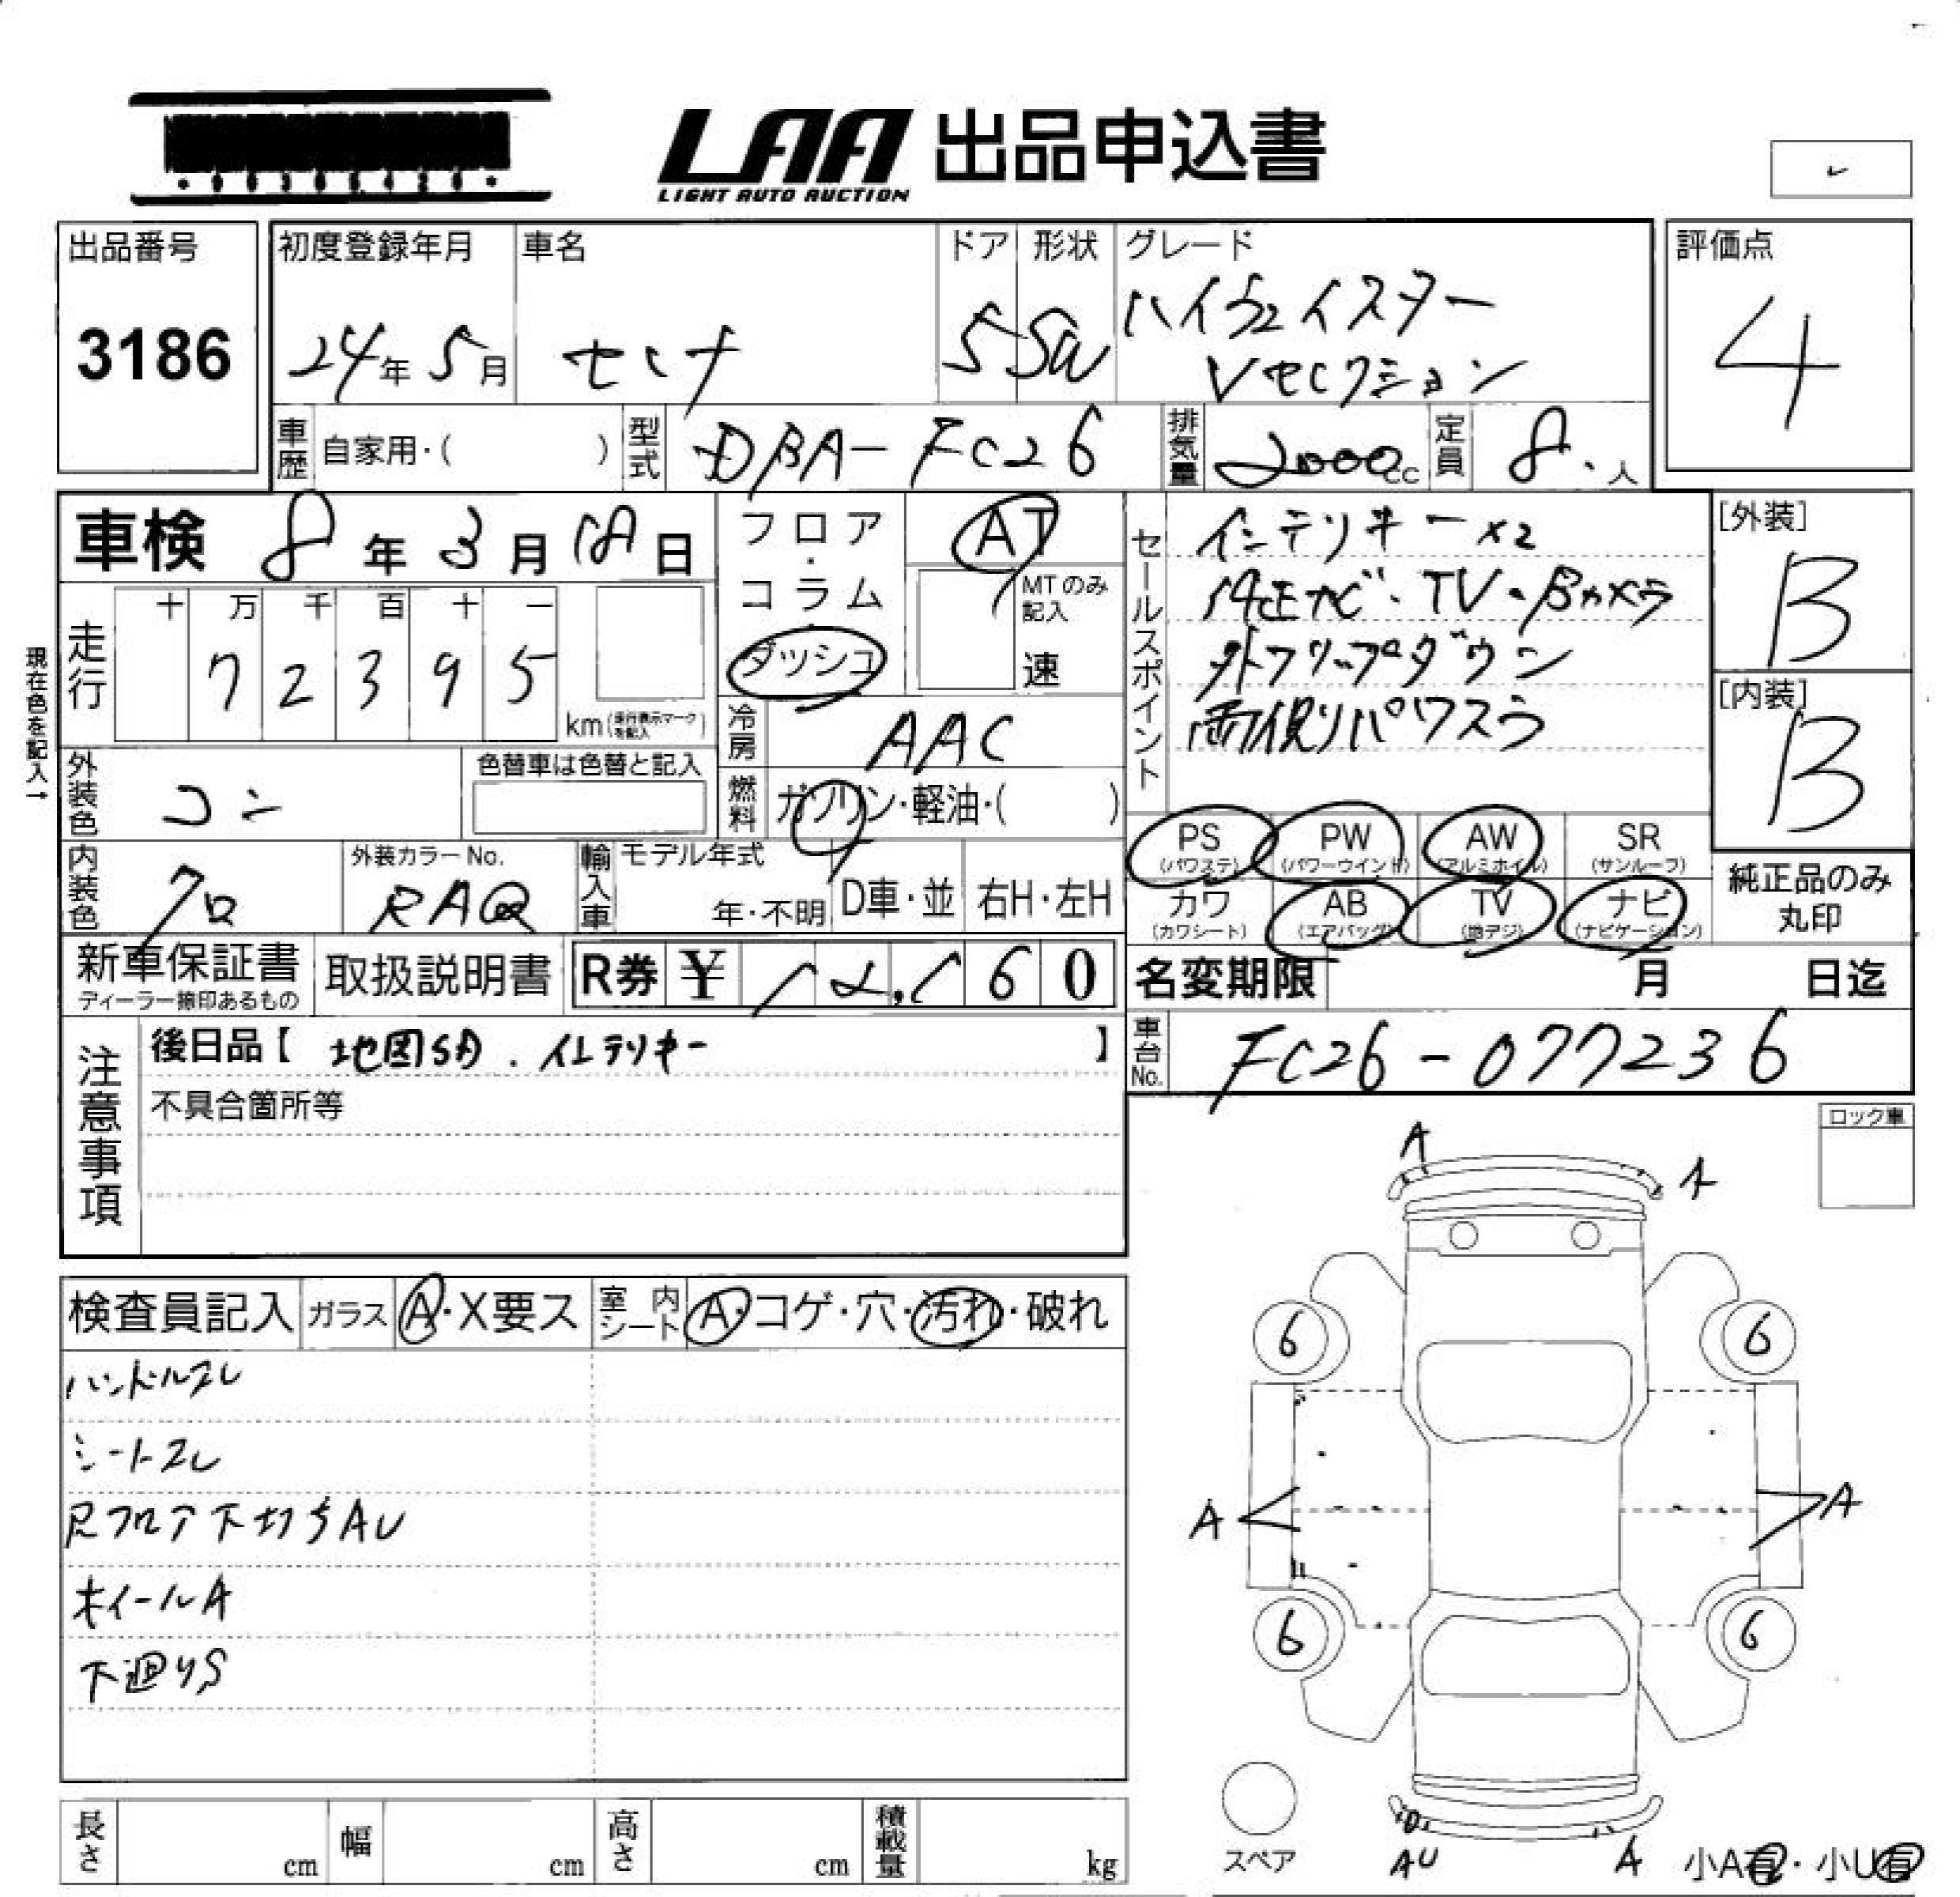 LAA 出品申込書
LIGHT AUTO AUCTION
出品番号
3186
初度登録年月
24年 5月
車名
セレナ
ドア
5
形状
SW
グレード
ハイウェイスター
Vセレクション
評価点
4
車歴 自家用・( )
型式 DBA-FC26
排気量 2000cc
定員 8人
車検 8年 3月 18日
フロア・コラム
ダッシュ
AT
MTのみ記入
速
現在色を記入→
走行
十 万 千 百 十 一
7 2 3 9 5
km(走行表示マークを記入)
冷房 AAC
燃料 ガソリン・軽油・( )
外装色 コン
色替車は色替と記入
内装色 クロ
外装カラーNo.
RAQ
輸入車 モデル年式
年・不明
D車・並
右H・左H
セールスポイント
インテリキー×2
純正ナビ・TV・Bカメラ
外フリップダウン
両側パワスラ
[外装]
B
[内装]
B
PS (パワステ)
PW (パワーウインド)
AW (アルミホイル)
SR (サンルーフ)
カワ (カワシート)
AB (エアバッグ)
TV (地デジ)
ナビ (ナビゲーション)
純正品のみ
丸印
新車保証書
ディーラー捺印あるもの
取扱説明書
R券 ¥ 12,160
名変期限 月 日迄
車台No. FC26-077236
注意事項
後日品【 地図SD.インテリキー 】
不具合箇所等
ロック車
A
A
検査員記入
ガラス A・X要ス
室内シート A・コゲ・穴・汚れ・破れ
ハンドルスレ
シートスレ
Rフロア下キズAU
ホイールA
下廻りS
6
6
A
A
6
6
スペア
AU
A
小A有・小U有
長さ cm
幅 cm
高さ cm
積載量 kg